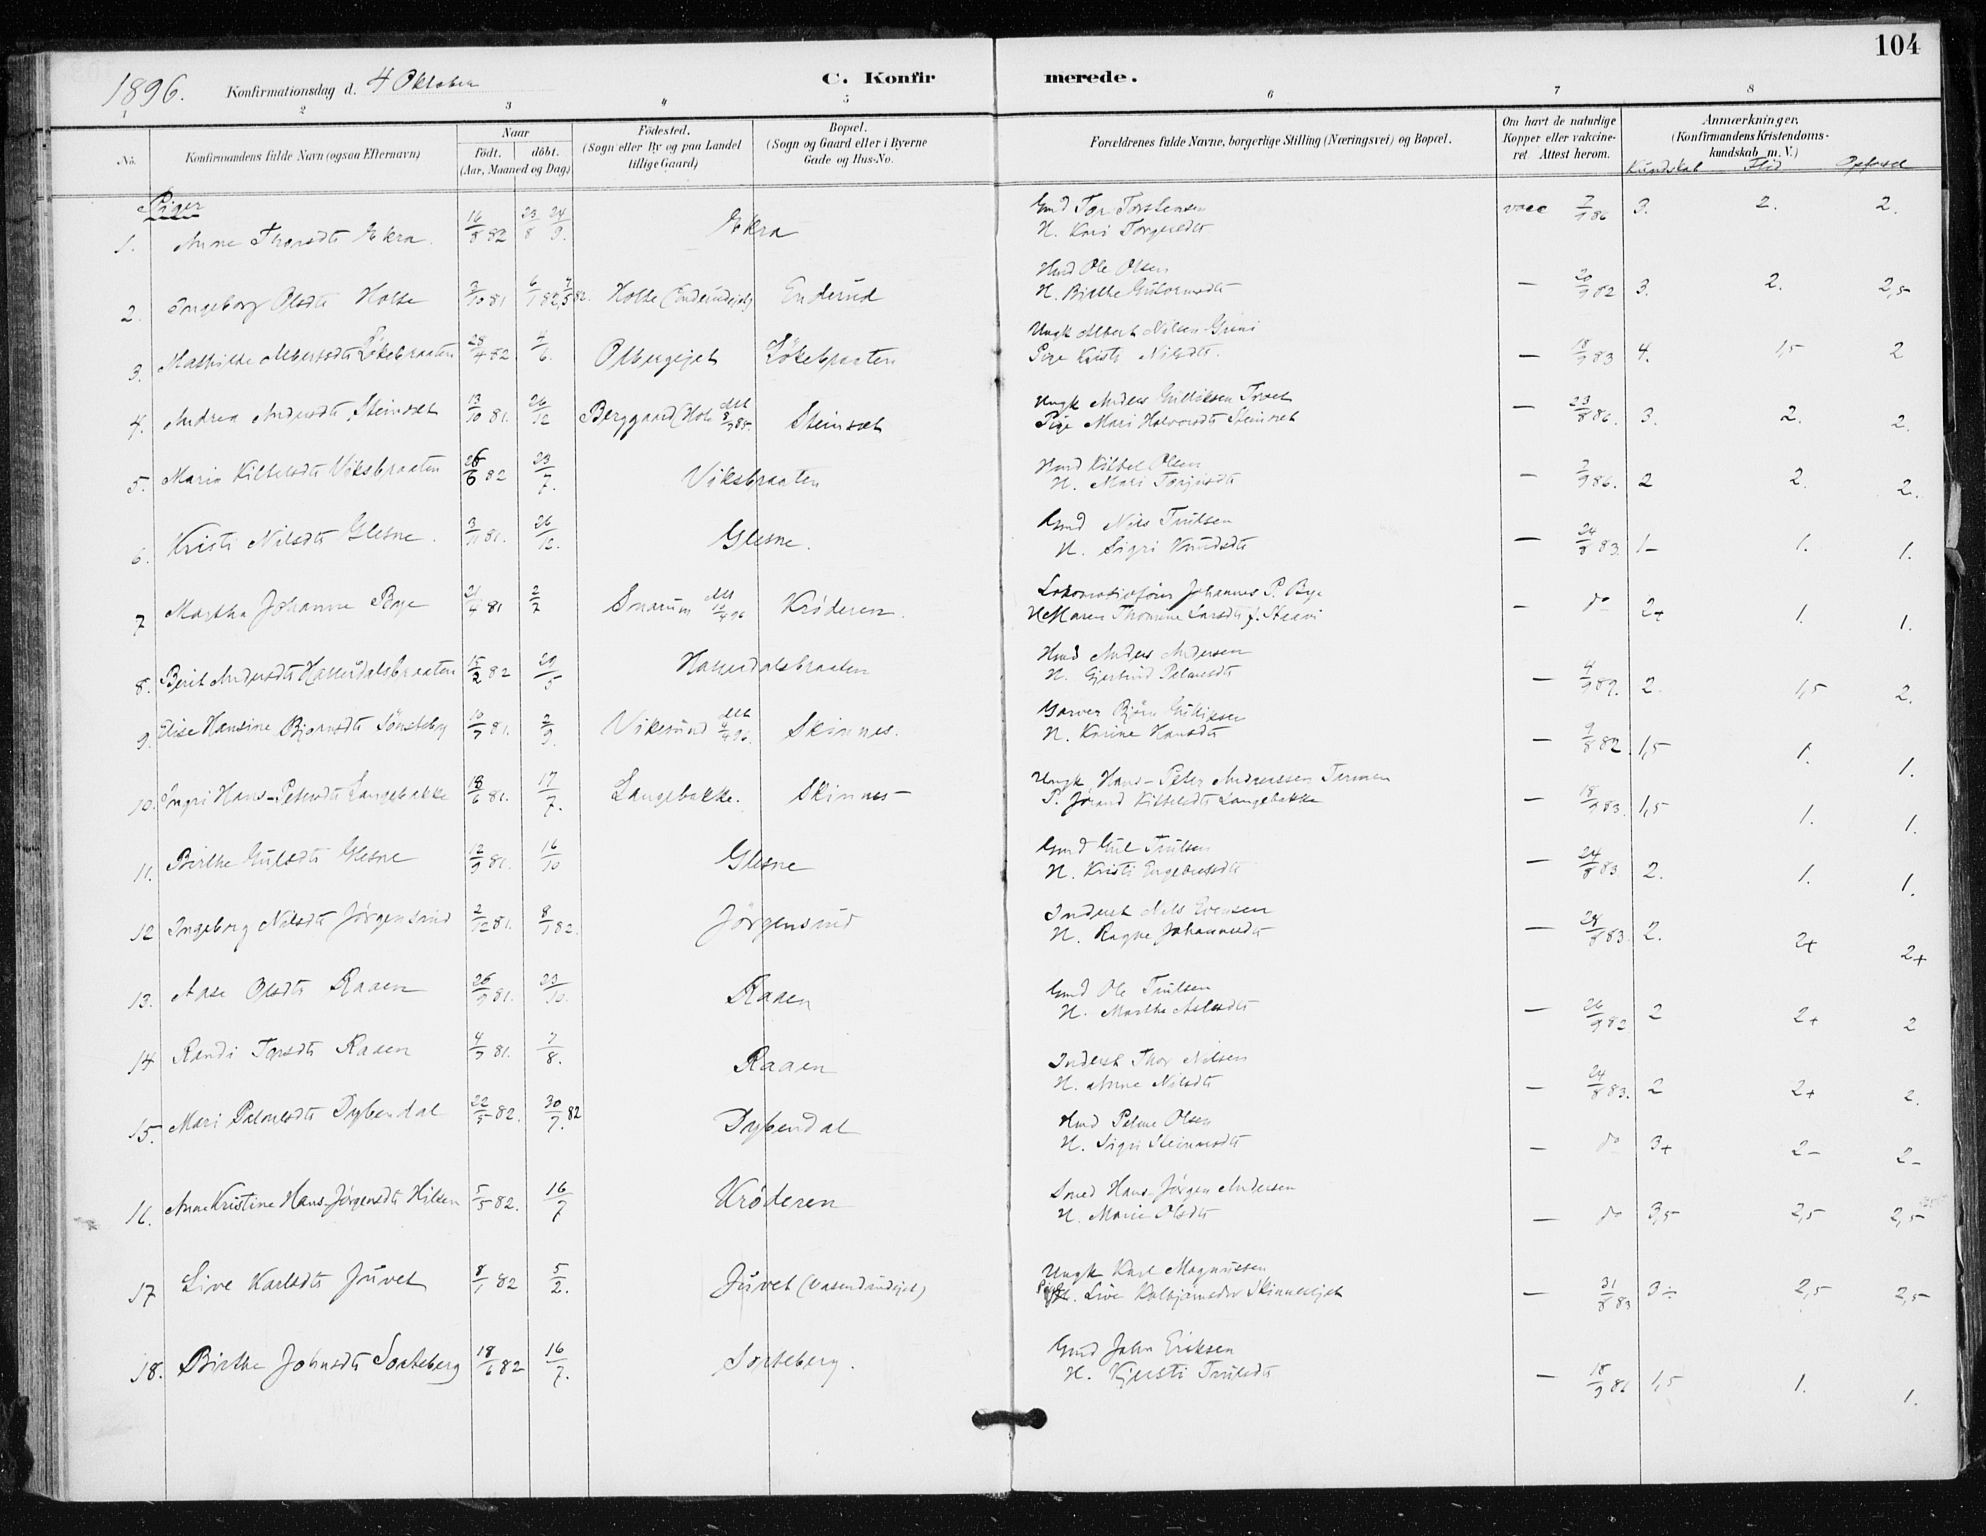 104
1896. Konfirmationsdag d. 4 Oktober C. Konfir merede.
1 2 3 4 5 6 7 8
No. Konfirmandens fulde Navn (ogsaa Efternavn) Naar Født. døbt. (Aar, Maaned og Dag) Fødested. (Sogn eller By og paa Landet tillige Gaard) Bopæl. (Sogn og Gaard eller i Byerne Gade og Hus-No. Forældrenes fulde Navne, borgerlige Stilling (Næringsvei) og Bopæl. Om havt de naturlige Kopper eller vakcineret Attest herom. Anmærkninger. (Konfirmandens Kristendomskundskab m. V.) Kundskab Flid Opførsel
Piger
1. Anne Thorsdtr Ekra. 16/8 82 23/8 24/9. Ekra Gmd Tor Torstensen vacc 7/9 86 3. 2. 2.
H. Kari Torgersdtr
2. Ingeborg Olsdtr Holte 3/10 81 6/1 82 Holte (Enderudejet) Enderud Hmd Ole Olsen
H. Birthe Guttormsdtr — 20/9 82 3. 2. 2,5
3. Mathilde Albertsdtr Løkebraaten 28/4 82 4/6. Olbergejet Løkebraaten Ungk Albert Nilsen Grini
Pige Kristi Nilsdtr. — 18/9 83 4. 1,5 2
4. Andrea Andersdtr Steinsæt 13/10 81. 26/12 Berggaard (Hole Steinsæt Ungk Anders Gulliksen
Pige Mari Halvorsdtr Steinsæt — 23/8 86. 3. 2. 2.
5. Maria Kittelsdtr Viksbraaten 26/6 82 23/7. Viksbraaten Hmd Kittel Olsen
H. Mari — 7/9 86. 2 2. 2.
6. Kristi Nilsdtr Glesne. 3/11 81. 26/12. Glesne. Gmd Nils Trulsen
H. Sigri Knudsdtr — 24/8 83. 1- 1. 1.
7 Martha Johanne Bye 21/4 81 2/7 Snarum Krøderen. Lokomotivfører Johannes P. Bye
H. Maren Thomine Larsdtr — do 2+ 1. 1.
8. Berit Andersdtr Haverdalsbraaten 15/2 82 29/5 Haverdalsbraaten Hmd Anders Andersen
H. Gjertrud — 4/9 89. 2. 1,5 2.
9. Elise Hansine Bjørnsdtr Sønsteby 10/7 81. 2/9. Vikesund Skinnes. Garver Bjørn Gulliksen
H. Karine Hansdtr — 9/8 82. 1,5 1. 1.
10. Ingri Hans-Petersdtr Langebakke 18/6 81. 17/7. Langebakke. Skinnes Ungk. Hans-Peter Andreassen
P. Jørand Kittelsdtr Langebakke — 18/9 83. 1,5 1. 1.
11. Birthe Gulsdtr Glesne 12/9 81. 16/10 Glesne Gmd Gul Trulsen
H. Kristi Engebretsdtr — 24/8 83 2. 1. 1.
12 Ingeborg Nilsdtr Jørgensrud 2/12 81. 8/1 82. Jørgensrud Inderst Nils Evensen
H. Ragne Johannesdtr — 24/8 83. 2. 2+ 2+
13. Aase Olsdtr Raaen 26/9 81. 23/10. Raaen Gmd Ole Trulsen
H. Marthe — 26/9 82 2 2+ 2
14 Randi Torsdtr Raaen 4/7 81. 7/8. Raaen Inderst Thor Nilsen
H. Anne Nilsdtr — 24/8 83. 2 2+ 2.
15. Mari Palmesdtr Dybendal 22/5 82. 30/7. 82 Dybendal Hmd Palme Olsen
H. Sigri Steinarsdtr — do 3+ 2- 2-
16. Anne Kristine Hans-Jørgensdtr Hilsen 5/5 82. 16/7 Krøderen Smed Hans-Jørgen Andersen
H. Marie Olsdtr — do 3,5 2,5 2,5
17 Live Karlsdtr Juvet 8/1 82 5/2. Juvet Ungk Karl Magnussen
Pige Live Kolbjørnsdtr Skinnesejet — 31/8 83 3÷ 2,5 2,5
18. Birthe Johnsdtr Sorteberg 18/6 82 16/7. Sorteberg. Gmd John Eriksen
H. Kjersti Trulsdtr — 18/9 86 1,5 1. 1.